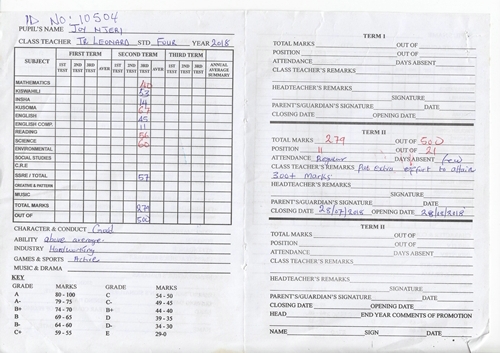 ID NO: 10504
PUPIL'S NAME Joy NJERI
CLASS TEACHER TR LEONARD STD FOUR YEAR 2018
SUBJECT FIRST TERM SECOND TERM THIRD TERM ANNUAL AVERAGE SUMMARY
1ST TEST 2ND TEST 3RD TEST AVER 1ST TEST 2ND TEST 3RD TEST AVER 1ST TEST 2ND TEST 3RD TEST AVER
MATHEMATICS
KISWAHILI 53
INSHA 14
KUSOMA 67
ENGLISH 45
ENGLISH COMP. 11
READING 56
SCIENCE 60
ENVIRONMENTAL
SOCIAL STUDIES
C.R.E
SSRE / TOTAL 57
CREATIVE & PATTERN
MUSIC
TOTAL MARKS 279
OUT OF 500
CHARACTER & CONDUCT Good
ABILITY above average
INDUSTRY Hardworking
GAMES & SPORTS Active
MUSIC & DRAMA
KEY
GRADE MARKS GRADE MARKS
A 80 - 100 C 54 - 50
A- 75 - 79 C 49 - 45
B+ 74 - 70 B+ 44 - 40
B 69 - 65 D 39 - 35
B- 64 - 60 D- 34 - 30
C+ 59 - 55 E 29-0
TERM I
TOTAL MARKS OUT OF
POSITION OUT OF
ATTENDANCE DAYS ABSENT
CLASS TEACHER'S REMARKS
HEADTEACHER'S REMARKS
SIGNATURE
PARENT'S/GUARDIAN SIGNATURE DATE
CLOSING DATE OPENING DATE
TERM II
TOTAL MARKS 279 OUT OF 500
POSITION 11 OUT OF 21
ATTENDANCE Regular DAYS ABSENT few
CLASS TEACHER'S REMARKS Put extra effort to attain
300+ Marks
HEADTEACHER'S REMARKS
SIGNATURE
PARENT'S/GUARDIAN'S SIGNATURE DATE
CLOSING DATE 28/07/2018 OPENING DATE
TERM II
TOTAL MARKS OUT OF
POSITION OUT OF
ATTENDANCE DAYS ABSENT
CLASS TEACHER'S REMARKS
HEADTEACHER'S REMARKS
SIGNATURE
PARENT'S/GUARDIAN'S SIGNATURE DATE
CLOSING DATE OPENING DATE
HEAD END YEAR COMMENTS OF PROMOTION
NAME SIGN DATE